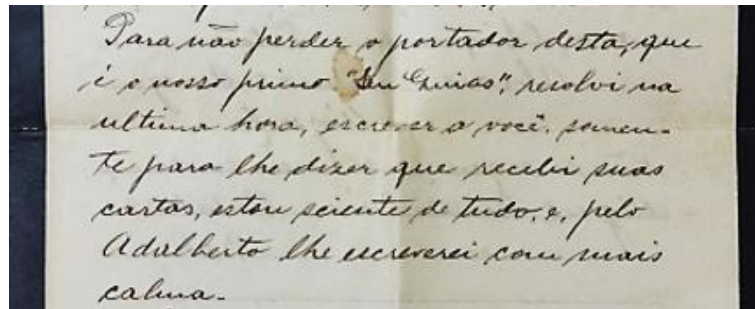 Para não perder o portador desta, que
é o nosso primo "Seu
resolvi na
ultima hora, escrever a você, somen-
te para lhe dizer que recebi suas
cartas, estou sciente de tudo, e, pelo
Adalberto lhe escreverei com mais
calma.